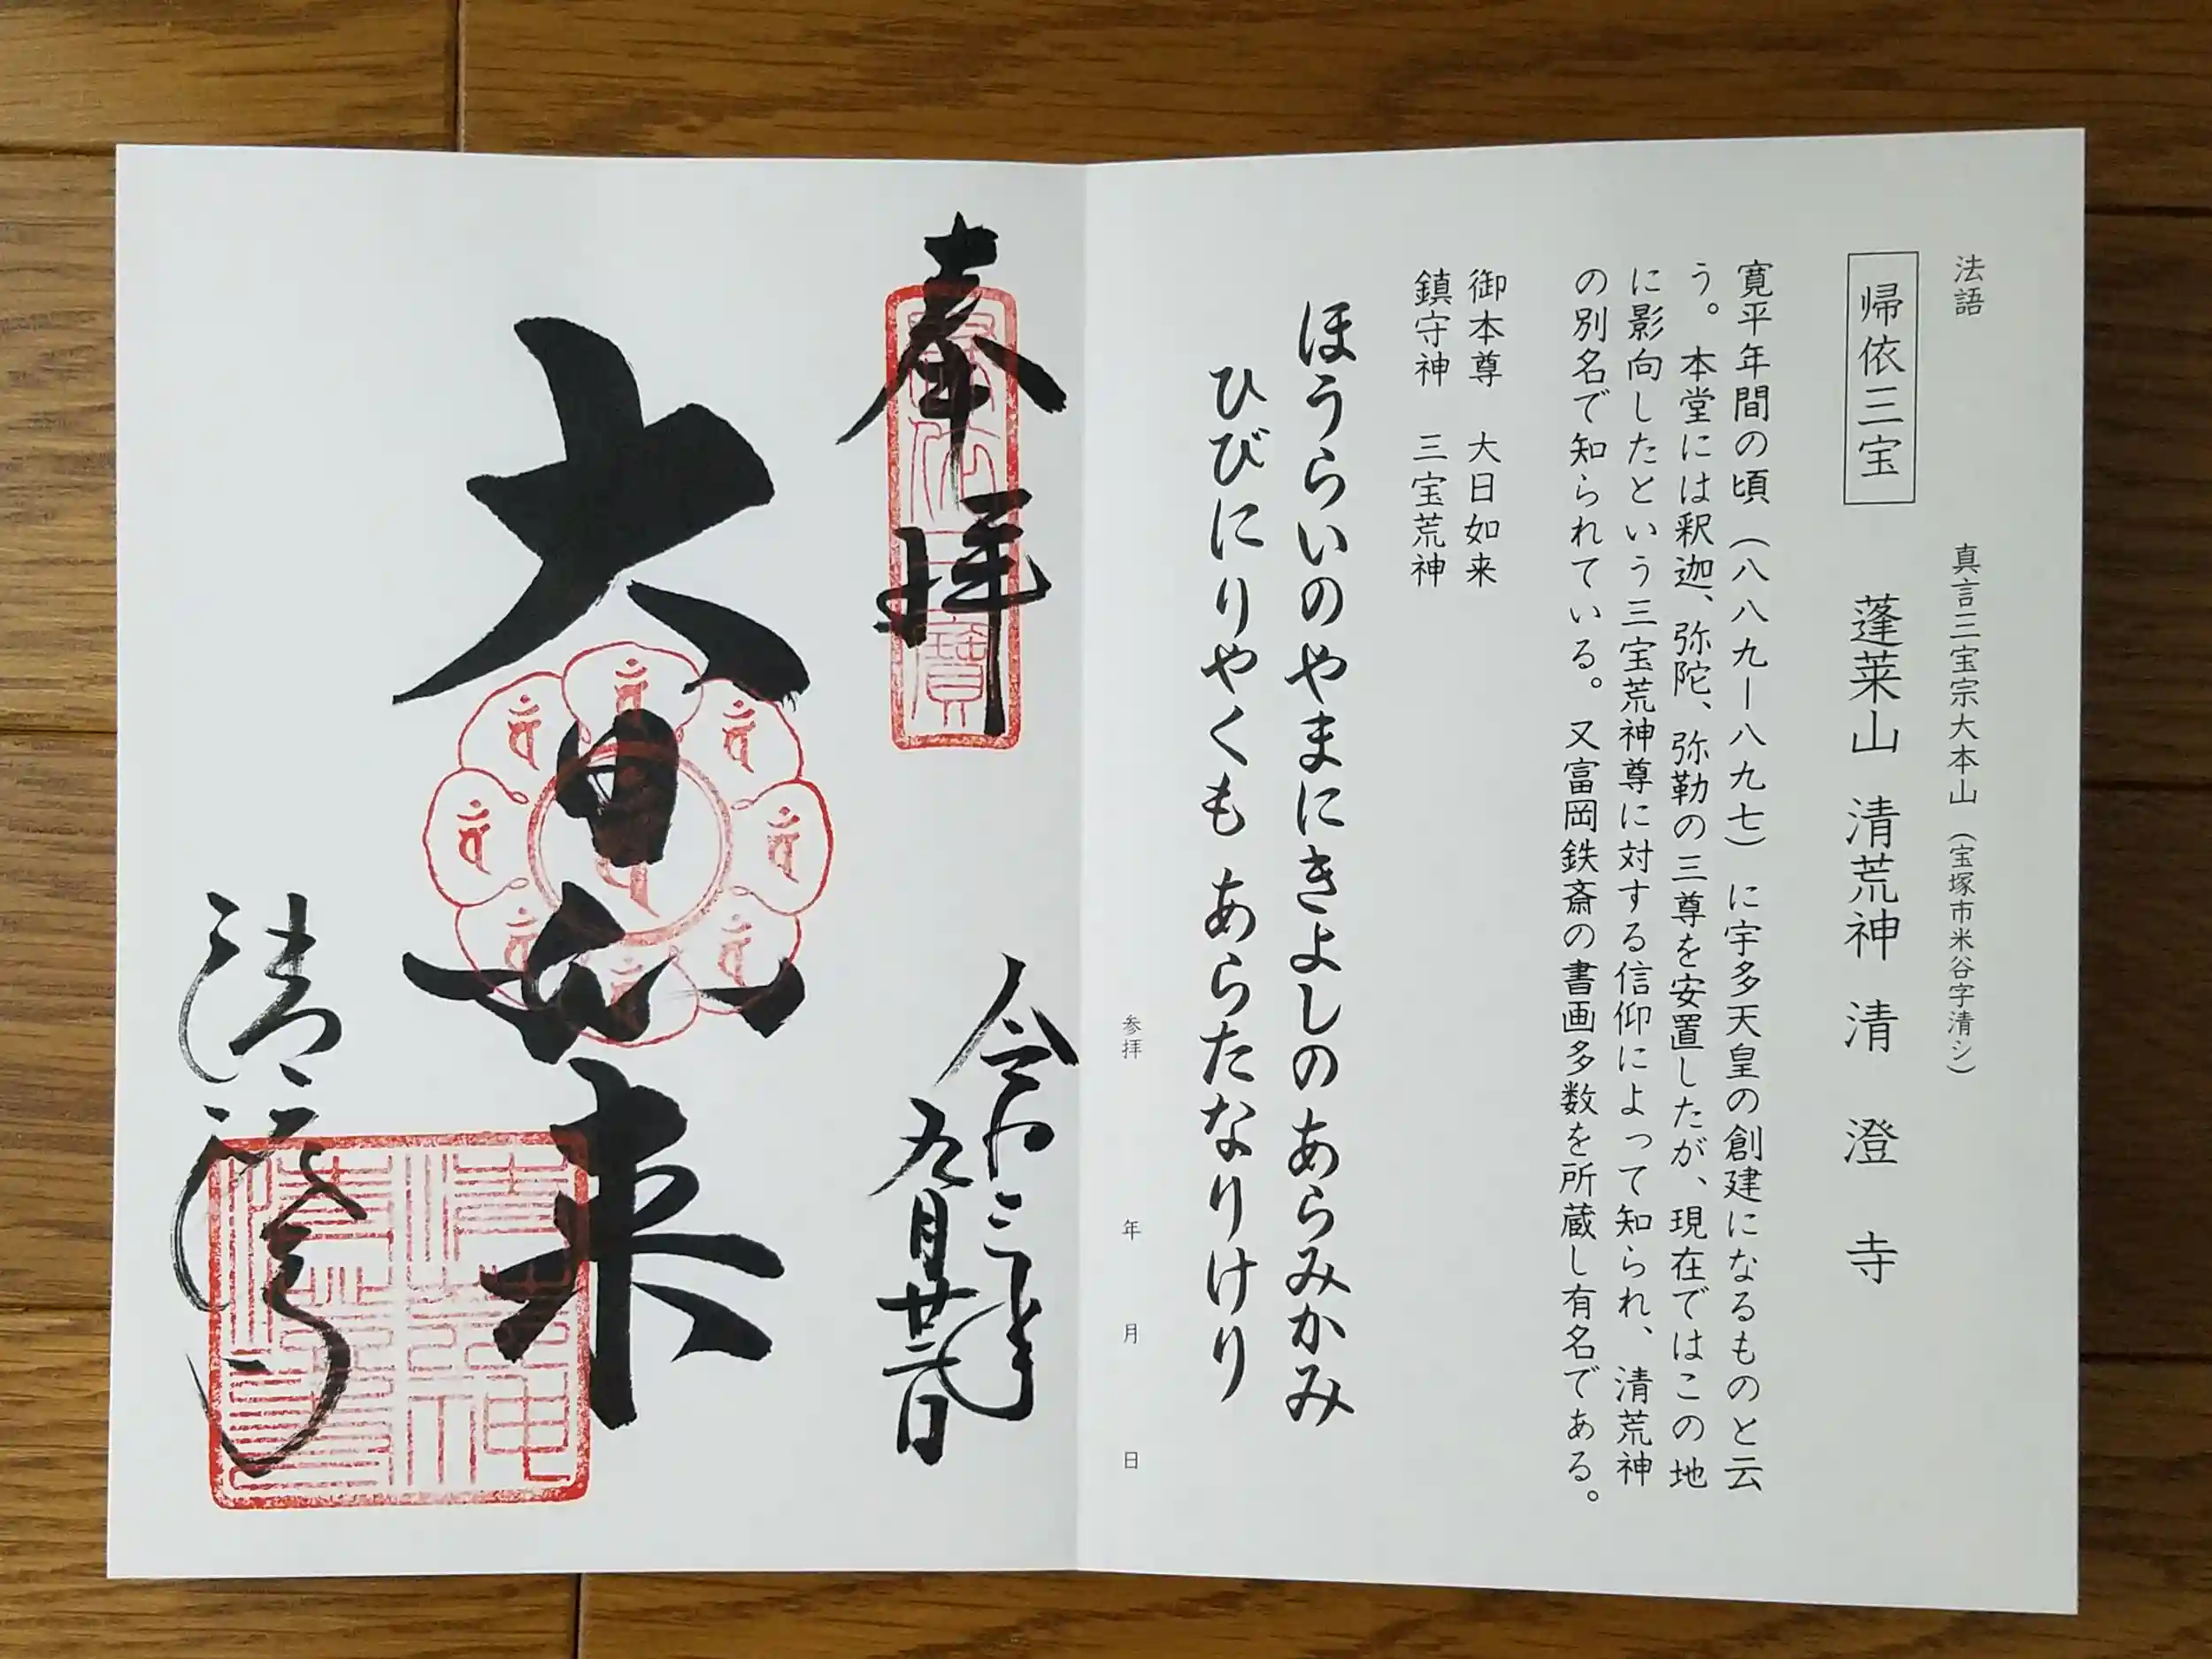 法語
真言三宝宗大本山（宝塚市米谷字清シ）
帰依三宝
蓬莱山 清荒神 清澄寺
寛平年間の頃（八八九ー八九七）に宇多天皇の創建になるものと云
う。本堂には釈迦、弥陀、弥勒の三尊を安置したが、現在ではこの地
に影向したという三宝荒神尊に対する信仰によって知られ、清荒神
の別名で知られている。又富岡鉄斎の書画多数を所蔵し有名である。
御本尊 大日如来
鎮守神 三宝荒神
ほうらいのやまにきよしのあらみかみ
ひびにりやくも あらたなりけり
参拝 年 月 日
奉拝
令和三年
九月廿二日
大日如来
清澄寺